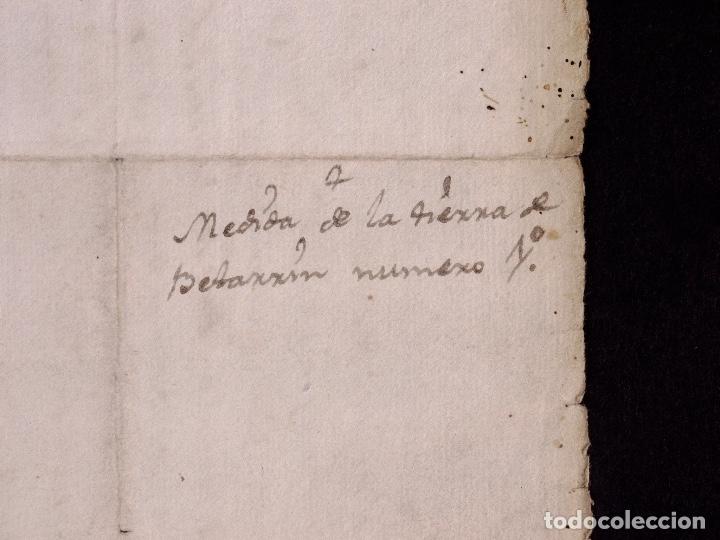 †
Medida de la tierra de
Betarrin numero 1º.
todocoleccion